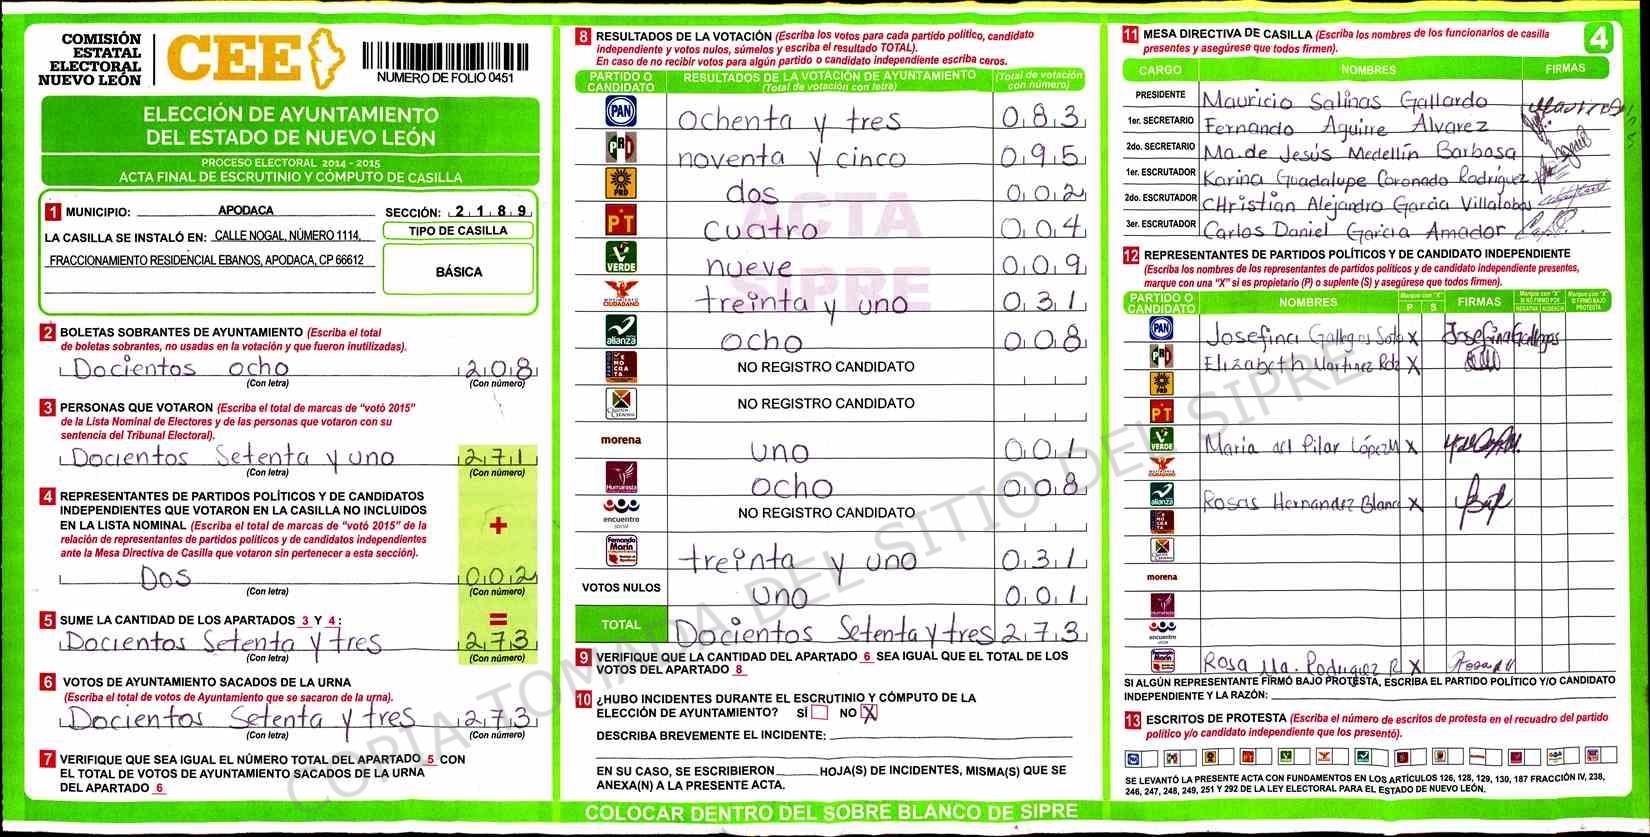 COMISIÓN
ESTATAL
ELECTORAL
NUEVO LEÓN
CEE
NUMERO DE FOLIO 0451
ELECCIÓN DE AYUNTAMIENTO
DEL ESTADO DE NUEVO LEÓN
PROCESO ELECTORAL 2014 - 2015
ACTA FINAL DE ESCRUTINIO Y CÓMPUTO DE CASILLA
1 MUNICIPIO: APODACA SECCIÓN: 2 1 8 9
LA CASILLA SE INSTALÓ EN: CALLE NOGAL, NÚMERO 1114,
FRACCIONAMIENTO RESIDENCIAL EBANOS, APODACA, CP 66612
TIPO DE CASILLA
BÁSICA
2 BOLETAS SOBRANTES DE AYUNTAMIENTO (Escriba el total
de boletas sobrantes, no usadas en la votación y que fueron inutilizadas).
Docientos ocho 2 0 8
(Con letra) (Con número)
3 PERSONAS QUE VOTARON (Escriba el total de marcas de “votó 2015”
de la Lista Nominal de Electores y de las personas que votaron con su
sentencia del Tribunal Electoral).
Docientos Setenta y uno 2 7 1
(Con letra) (Con número)
4 REPRESENTANTES DE PARTIDOS POLÍTICOS Y DE CANDIDATOS
INDEPENDIENTES QUE VOTARON EN LA CASILLA NO INCLUIDOS
EN LA LISTA NOMINAL (Escriba el total de marcas de “votó 2015” de la
relación de representantes de partidos políticos y de candidatos independientes
ante la Mesa Directiva de Casilla que votaron sin pertenecer a esta sección).
+
Dos 0 0 2
(Con letra) (Con número)
5 SUME LA CANTIDAD DE LOS APARTADOS 3 Y 4 : =
Docientos Setenta y tres 2 7 3
(Con letra) (Con número)
6 VOTOS DE AYUNTAMIENTO SACADOS DE LA URNA
(Escriba el total de votos de Ayuntamiento que se sacaron de la urna).
Docientos Setenta y tres 2 7 3
(Con letra) (Con número)
7 VERIFIQUE QUE SEA IGUAL EL NÚMERO TOTAL DEL APARTADO 5 CON
EL TOTAL DE VOTOS DE AYUNTAMIENTO SACADOS DE LA URNA
DEL APARTADO 6
8 RESULTADOS DE LA VOTACIÓN (Escriba los votos para cada partido político, candidato
independiente y votos nulos, súmelos y escriba el resultado TOTAL).
En caso de no recibir votos para algún partido o candidato independiente escriba ceros.
PARTIDO O CANDIDATO RESULTADOS DE LA VOTACIÓN DE AYUNTAMIENTO (Total de votación con letra) (Total de votación con número)
PAN ochenta y tres 0 8 3
PRD noventa y cinco 0 9 5
PRD dos 0 0 2
PT cuatro 0 0 4
VERDE nueve 0 0 9
MOVIMIENTO CIUDADANO treinta y uno 0 3 1
alianza ocho 0 0 8
NO REGISTRO CANDIDATO
NO REGISTRO CANDIDATO
morena uno 0 0 1
Humanista ocho 0 0 8
encuentro social NO REGISTRO CANDIDATO
Fernando Marín treinta y uno 0 3 1
VOTOS NULOS uno 0 0 1
TOTAL Docientos Setenta y tres 2 7 3
ACTA
SIPRE
9 VERIFIQUE QUE LA CANTIDAD DEL APARTADO 6 SEA IGUAL QUE EL TOTAL DE LOS
VOTOS DEL APARTADO 8
10 ¿HUBO INCIDENTES DURANTE EL ESCRUTINIO Y CÓMPUTO DE LA
ELECCIÓN DE AYUNTAMIENTO? SÍ NO X
DESCRIBA BREVEMENTE EL INCIDENTE:
EN SU CASO, SE ESCRIBIERON HOJA(S) DE INCIDENTES, MISMA(S) QUE SE
ANEXA(N) A LA PRESENTE ACTA.
COLOCAR DENTRO DEL SOBRE BLANCO DE SIPRE
11 MESA DIRECTIVA DE CASILLA (Escriba los nombres de los funcionarios de casilla
presentes y asegúrese que todos firmen).
4
CARGO NOMBRES FIRMAS
PRESIDENTE Mauricio Salinas Gallardo
1er. SECRETARIO Fernando Aguirre Alvarez
2do. SECRETARIO Ma. de Jesús Medellín Barbosa
1er. ESCRUTADOR Karina Guadalupe Coronado Rodríguez
2do. ESCRUTADOR CHristian Alejandro Garcia Villalobos
3er. ESCRUTADOR Carlos Daniel Garcia Amador
12 REPRESENTANTES DE PARTIDOS POLÍTICOS Y DE CANDIDATO INDEPENDIENTE
(Escriba los nombres de los representantes de partidos políticos y de candidato independiente presentes,
marque con una “X” si es propietario (P) o suplente (S) y asegúrese que todos firmen).
PARTIDO O CANDIDATO NOMBRES Marque con "X" P S FIRMAS Marque con "X" SI NO FIRMÓ POR NEGATIVA AUSENCIA Marque con "X" SI FIRMÓ BAJO PROTESTA
PAN Josefina Gallegos Soto X Josefina Gallegos
PRD Elizabeth Martinez Rdz X
PRD
PT
VERDE Maria del Pilar López M X
alianza Rosas Hernandez Blanca X
morena
encuentro
Rosa Ma. Rodriguez R X
SI ALGÚN REPRESENTANTE FIRMÓ BAJO PROTESTA, ESCRIBA EL PARTIDO POLÍTICO Y/O CANDIDATO
INDEPENDIENTE Y LA RAZÓN:
13 ESCRITOS DE PROTESTA (Escriba el número de escritos de protesta en el recuadro del partido
político y/o candidato independiente que los presentó).
SE LEVANTÓ LA PRESENTE ACTA CON FUNDAMENTOS EN LOS ARTÍCULOS 126, 128, 129, 130, 187 FRACCIÓN IV, 238,
246, 247, 248, 249, 251 Y 292 DE LA LEY ELECTORAL PARA EL ESTADO DE NUEVO LEÓN.
COPIA TOMADA DEL SITIO DEL SIPRE